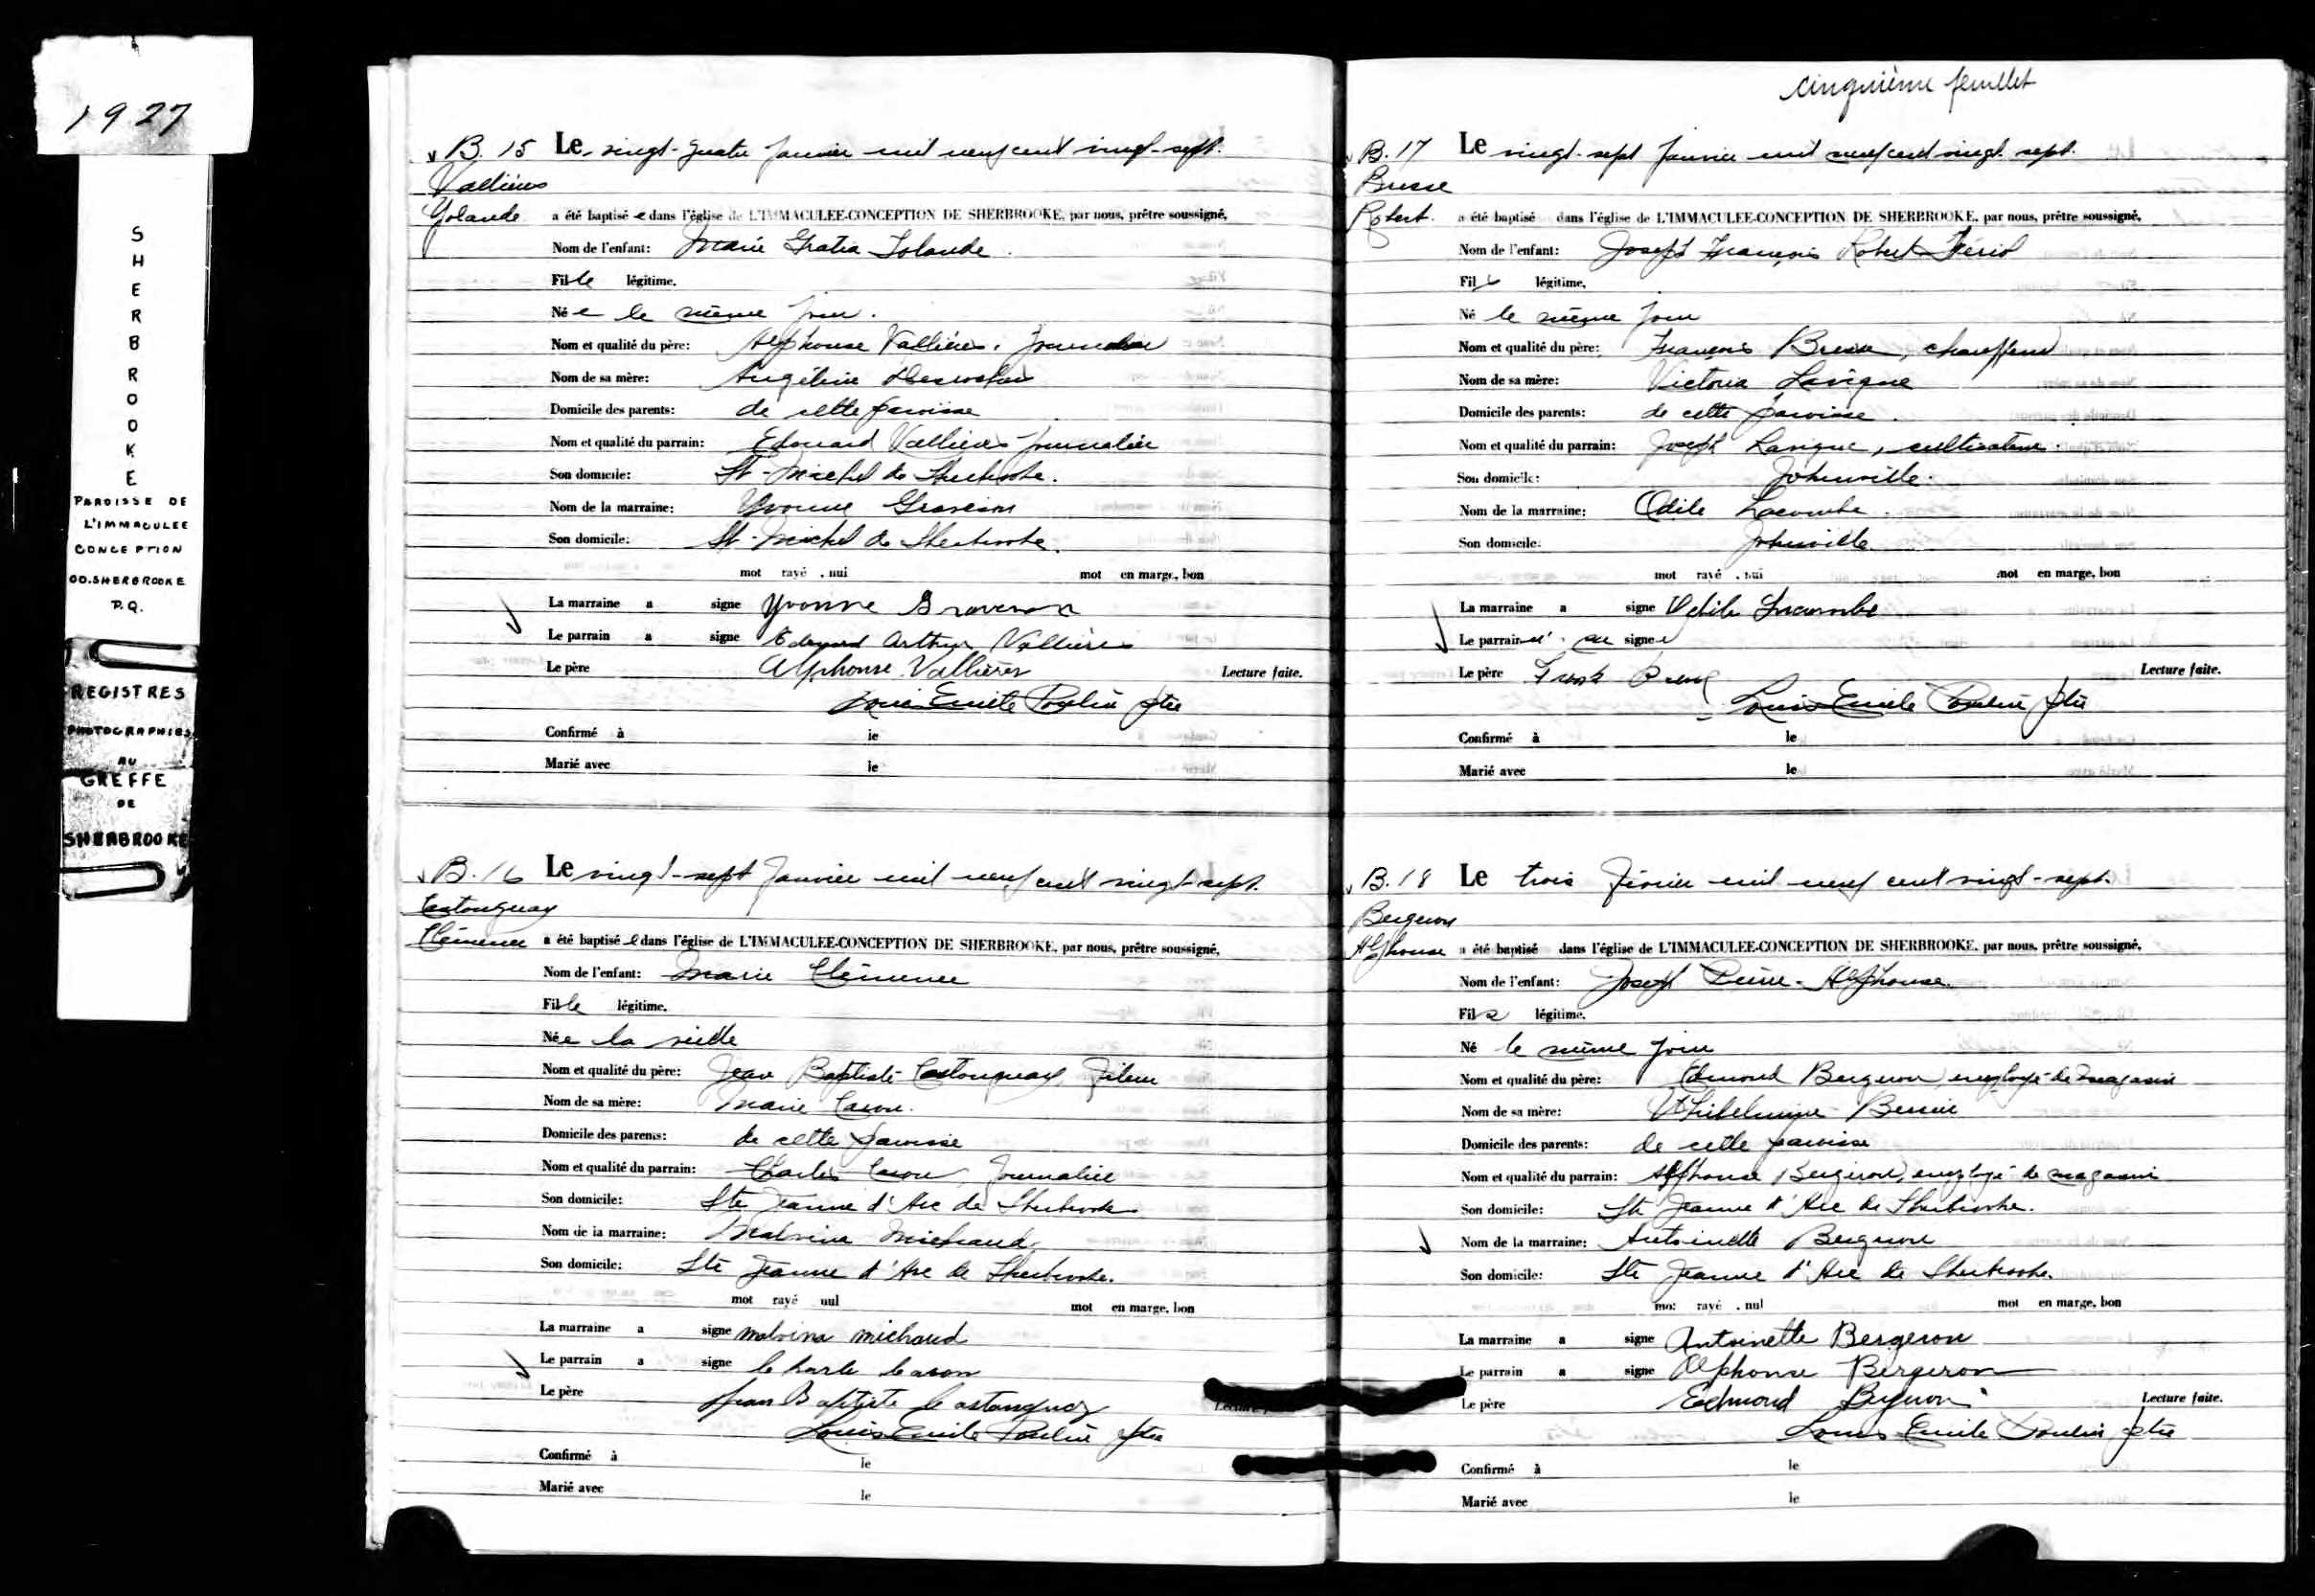 1927
SHERBROOKE
PAROISSE DE
L'IMMACULEE
CONCEPTION
CO. SHERBROOKE
P.Q.
REGISTRES
PHOTOGRAPHIES
AU
GREFFE
DE
SHERBROOKE
B. 15 Le vingt-quatre Janvier mil neuf cent vingt-sept.
Vallières
Yolande a été baptisé e dans l'église de L'IMMACULEE-CONCEPTION DE SHERBROOKE, par nous, prêtre soussigné,
Nom de l'enfant: Marie Gratia Iolande
Fille légitime.
Né e le même jour.
Nom et qualité du père: Alphonse Vallières, Journalier
Nom de sa mère: Angéline Desrochers
Domicile des parents: de cette paroisse
Nom et qualité du parrain: Edouard Vallières Journalier
Son domicile: St-Michel de Sherbrooke.
Nom de la marraine: Yvonne Graveson
Son domicile: St-Michel de Sherbrooke.
mot rayé , nul mot en marge, bon
La marraine a signé Yvonne
Le parrain a signé Edouard Arthur Vallières
Le père Alphonse Vallières Lecture faite.
Louis Emile Poulin ptre
Confirmé à le
Marié avec le
B. 16 Le vingt-sept Janvier mil neuf cent vingt-sept.
Castonguay
Clémence a été baptisé e dans l'église de L'IMMACULEE-CONCEPTION DE SHERBROOKE, par nous, prêtre soussigné,
Nom de l'enfant: Marie Clémence
Fille légitime.
Né e la veille
Nom et qualité du père: Jean Baptiste Castonguay, fileur
Nom de sa mère: Marie Caron.
Domicile des parents: de cette paroisse
Nom et qualité du parrain: Charles Caron, Journalier
Son domicile: Ste Jeanne d'Arc de Sherbrooke
Nom de la marraine: Malvina Michaud.
Son domicile: Ste Jeanne d'Arc de Sherbrooke.
mot rayé nul mot en marge, bon
La marraine a signé malvina michaud
Le parrain a signé Charle Caron
Le père Jean Baptiste Castonguay
Louis Emile Poulin ptre
Confirmé à le
Marié avec le
cinquième feuillet
B. 17 Le vingt-sept Janvier mil neuf cent vingt-sept.
Busse
Robert. a été baptisé dans l'église de L'IMMACULEE-CONCEPTION DE SHERBROOKE, par nous, prêtre soussigné,
Nom de l'enfant: Joseph François Robert
Fils légitime,
Né le même jour
Nom et qualité du père: François, chauffeur
Nom de sa mère: Victoria Lavigne
Domicile des parents: de cette paroisse.
Nom et qualité du parrain: Joseph Lavigne, cultivateur.
Son domicile: Johnville.
Nom de la marraine: Odile Lacombe.
Son domicile: Johnville
mot rayé , nul mot en marge, bon
La marraine a signé Odile Lacombe
Le parrain n'a su signer
Le père Frank Lecture faite.
Louis Emile Poulin ptre
Confirmé à le
Marié avec le
B. 18 Le trois Février mil neuf cent vingt-sept.
Bergeron
Alphonse a été baptisé dans l'église de L'IMMACULEE-CONCEPTION DE SHERBROOKE, par nous, prêtre soussigné,
Nom de l'enfant: Joseph Pierre-Alphonse.
Fils légitime.
Né le même jour
Nom et qualité du père: Edmond Bergeron, employé de magasin
Nom de sa mère: Bernier
Domicile des parents: de cette paroisse
Nom et qualité du parrain: Alphonse Bergeron, employé de magasin
Son domicile: Ste Jeanne d'Arc de Sherbrooke.
Nom de la marraine: Antoinette Bergeron
Son domicile: Ste Jeanne d'Arc de Sherbrooke.
mot rayé , nul mot en marge, bon
La marraine a signé Antoinette Bergeron
Le parrain a signé Alphonse Bergeron
Le père Edmond Bergeron Lecture faite.
Louis Emile Poulin ptre
Confirmé à le
Marié avec le